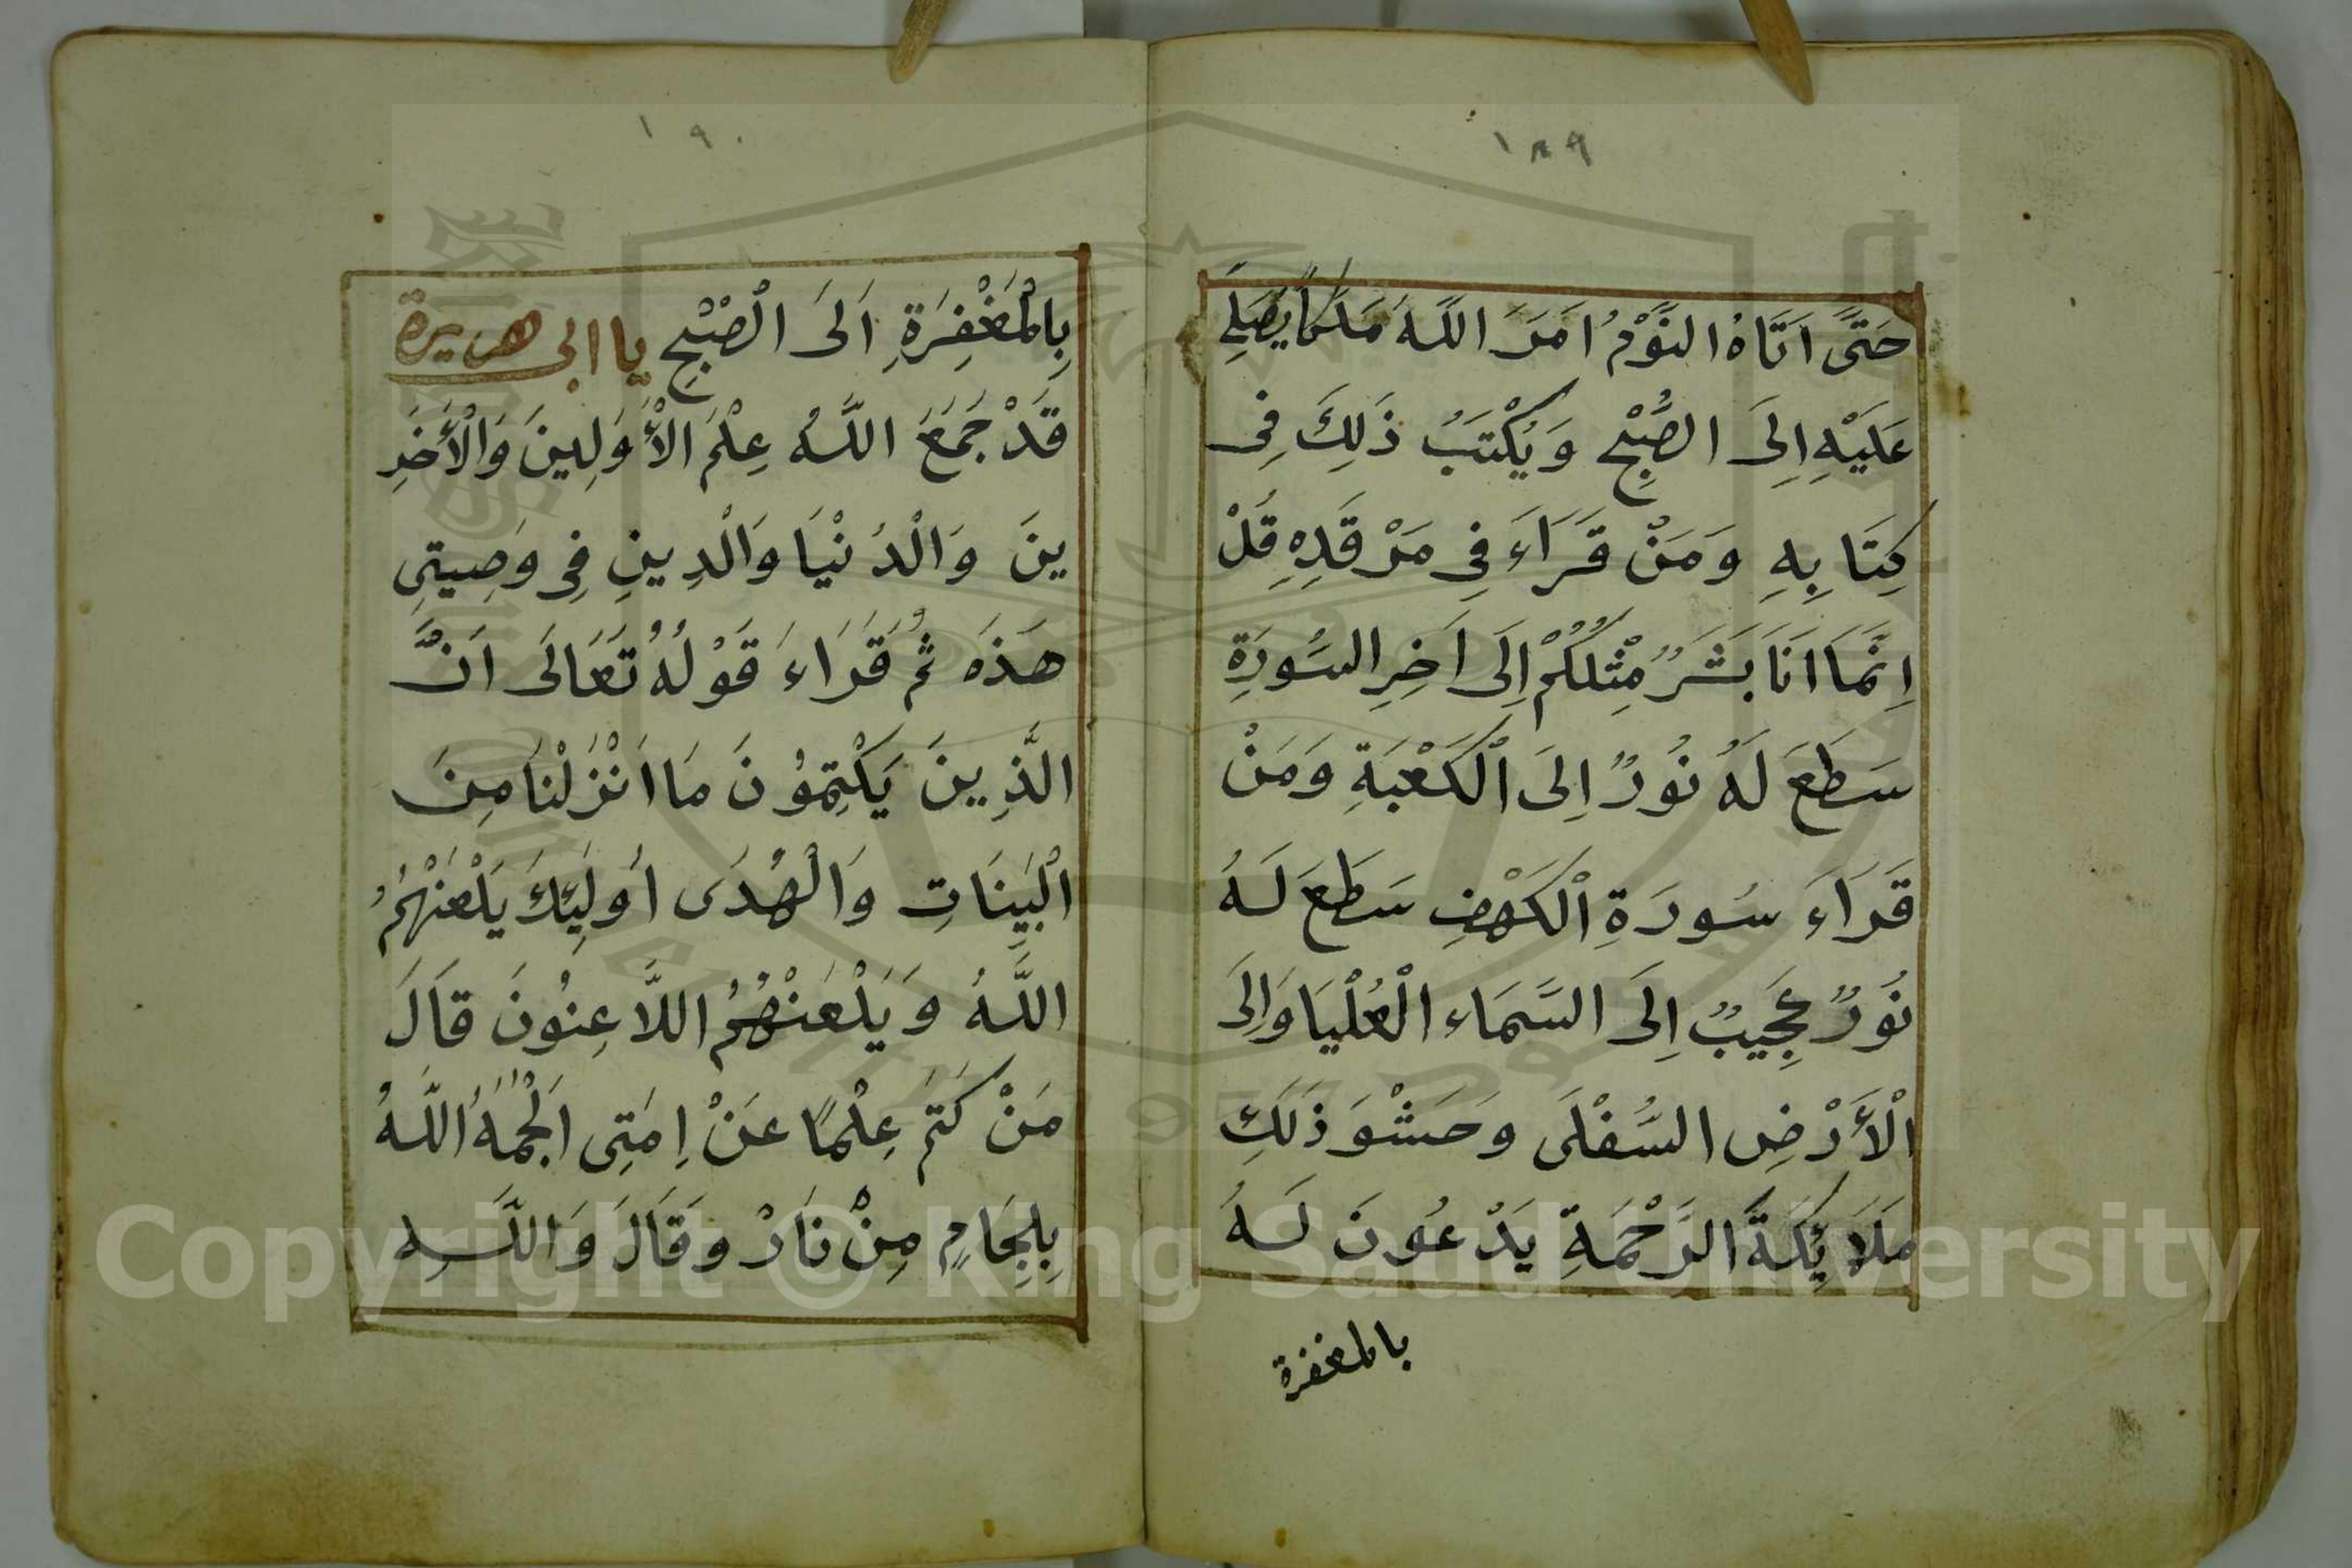 ١٨٩
حَتَّى اَتَاهُ النَّوْمُ اَمَرَ اللَّهُ مَلَكًا يُصَلِّي
عَلَيْهِ اِلَى الصُّبْحِ وَيُكْتَبُ ذَلِكَ فِى
كِتَابِهِ وَمَنْ قَرَاءَ فِى مَرْقَدِهِ قُلْ
اِنَّمَا اَنَا بَشَرٌ مِثْلُكُمْ اِلَى اَخِرِ السُّورَةِ
سَطَعَ لَهُ نُورٌ اِلَى الْكَعْبَةِ وَمَنْ
قَرَاءَ سُورَةِ الْكَهْفِ سَطَعَ لَهُ
نُورٌ عَجِيبٌ اِلَى السَّمَاءِ الْعُلْيَا وَاِلَى
الْأَرْضِ السُّفْلَى وَحَشْوَ ذَلِكَ
مَلَائِكَةَ الرَّحْمَةِ يَدْعُونَ لَهُ
بالمغفرة
١٩٠
بِالْمَغْفِرَةِ اَلَى الْصُبْحِ يا ابى هريرة
قَدْ جَمَعَ اللَّهُ عِلْمَ الْأَوَلِينَ وَالْأَخَرِ
ينَ وَالْدُنْيَا وَالْدِينِ فِى وَصِيتِى
هَذَه ثُمَّ قَرَاءَ قَوْلُهُ تَعَالَى اَنَّ
الَّذِينَ يَكْتِمُونَ مَا اَنْزَلْنَا مِنَ
الْبَيِنَاتِ وَالْهُدَى اُولَئِكَ يَلْعَنْهُمُ
اللَّهُ وَيَلْعَنْهُمُ اللَّاعِنُونَ قَالَ
مَنْ كَتَمَ عِلْمًا عَنْ اِمَتِى اَلْجَمَهُ اللَّهُ
بِلِجَامٍ مِنْ نَارْ وَقَالَ وَاللَّهِ
Copyright © King Saud University